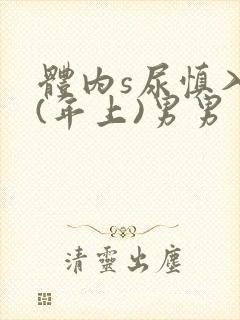 體内s尿慎入
(年上)男男
清靈出塵